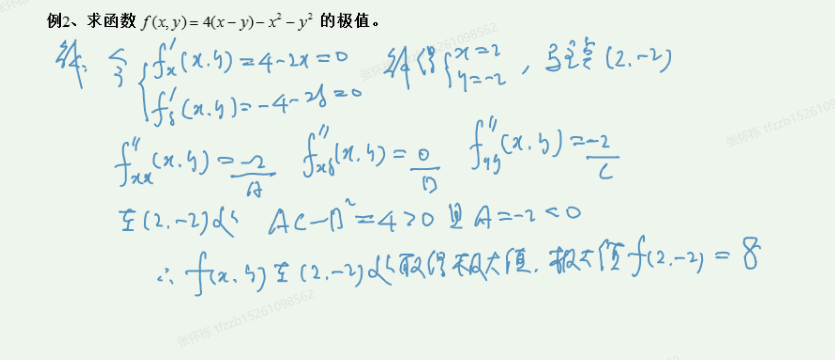 例2、求函数 f(x,y)=4(x−y)−x²−y² 的极值。
解: 令 { f'x(x.y)=4-2x=0 解得 { x=2 , 驻点(2.-2)
f'y(x.y)=-4-2y=0 y=-2
f''xx(x.y)=-2 f''xy(x.y)=0 f''yy(x.y)=-2
A B C
在(2.-2)处 AC-B²=4>0 且 A=-2<0
∴ f(x.y)在(2.-2)处取得极大值. 极大值f(2.-2)=8
张怀栋 tfzzb15261098562